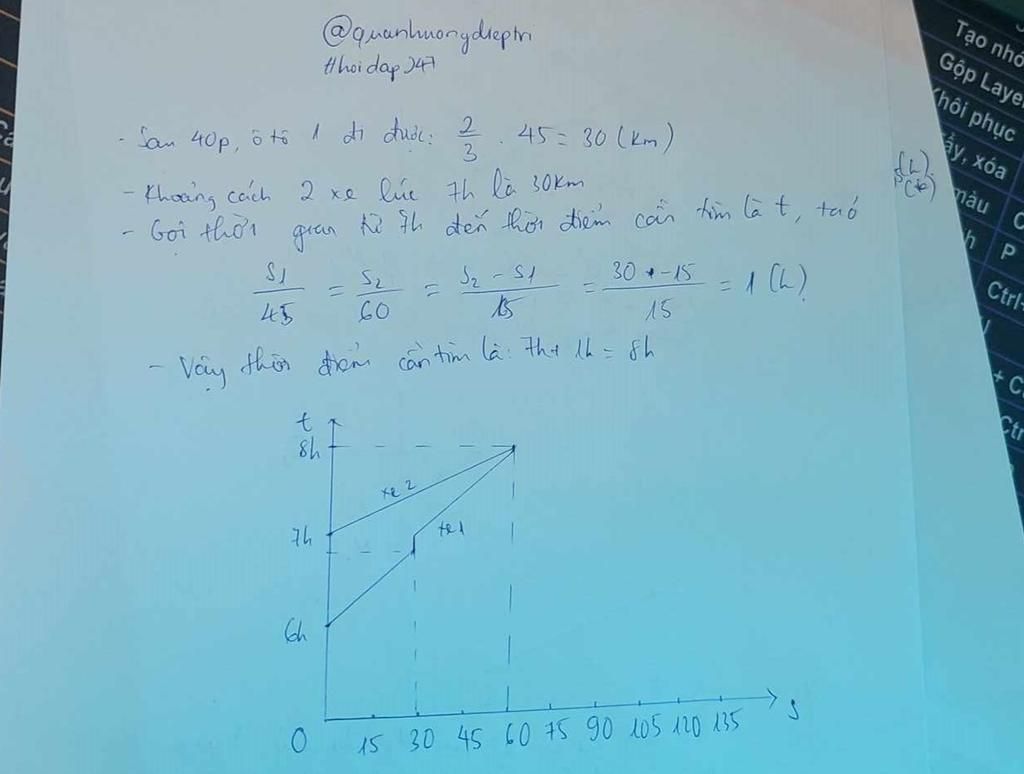 @quanhuongdieptri
#hoidap247
- Sau 40p, ô tô 1 đi được: 2/3 . 45 = 30 (km)
- Khoảng cách 2 xe lúc 7h là 30km
- Gọi thời gian từ 7h đến thời điểm cần tìm là t, ta có
S1/45 = S2/60 = S2 - S1/15 = 30 -15/15 = 1 (h)
- Vậy thời điểm cần tìm là: 7h + 1h = 8h
t
8h
xe 2
7h
xe 1
6h
O 15 30 45 60 75 90 105 120 135 S
Tạo nhó
Gộp Laye
khôi phục
ẩy, xóa
màu
P
Ctrl+
+ C
Ctr